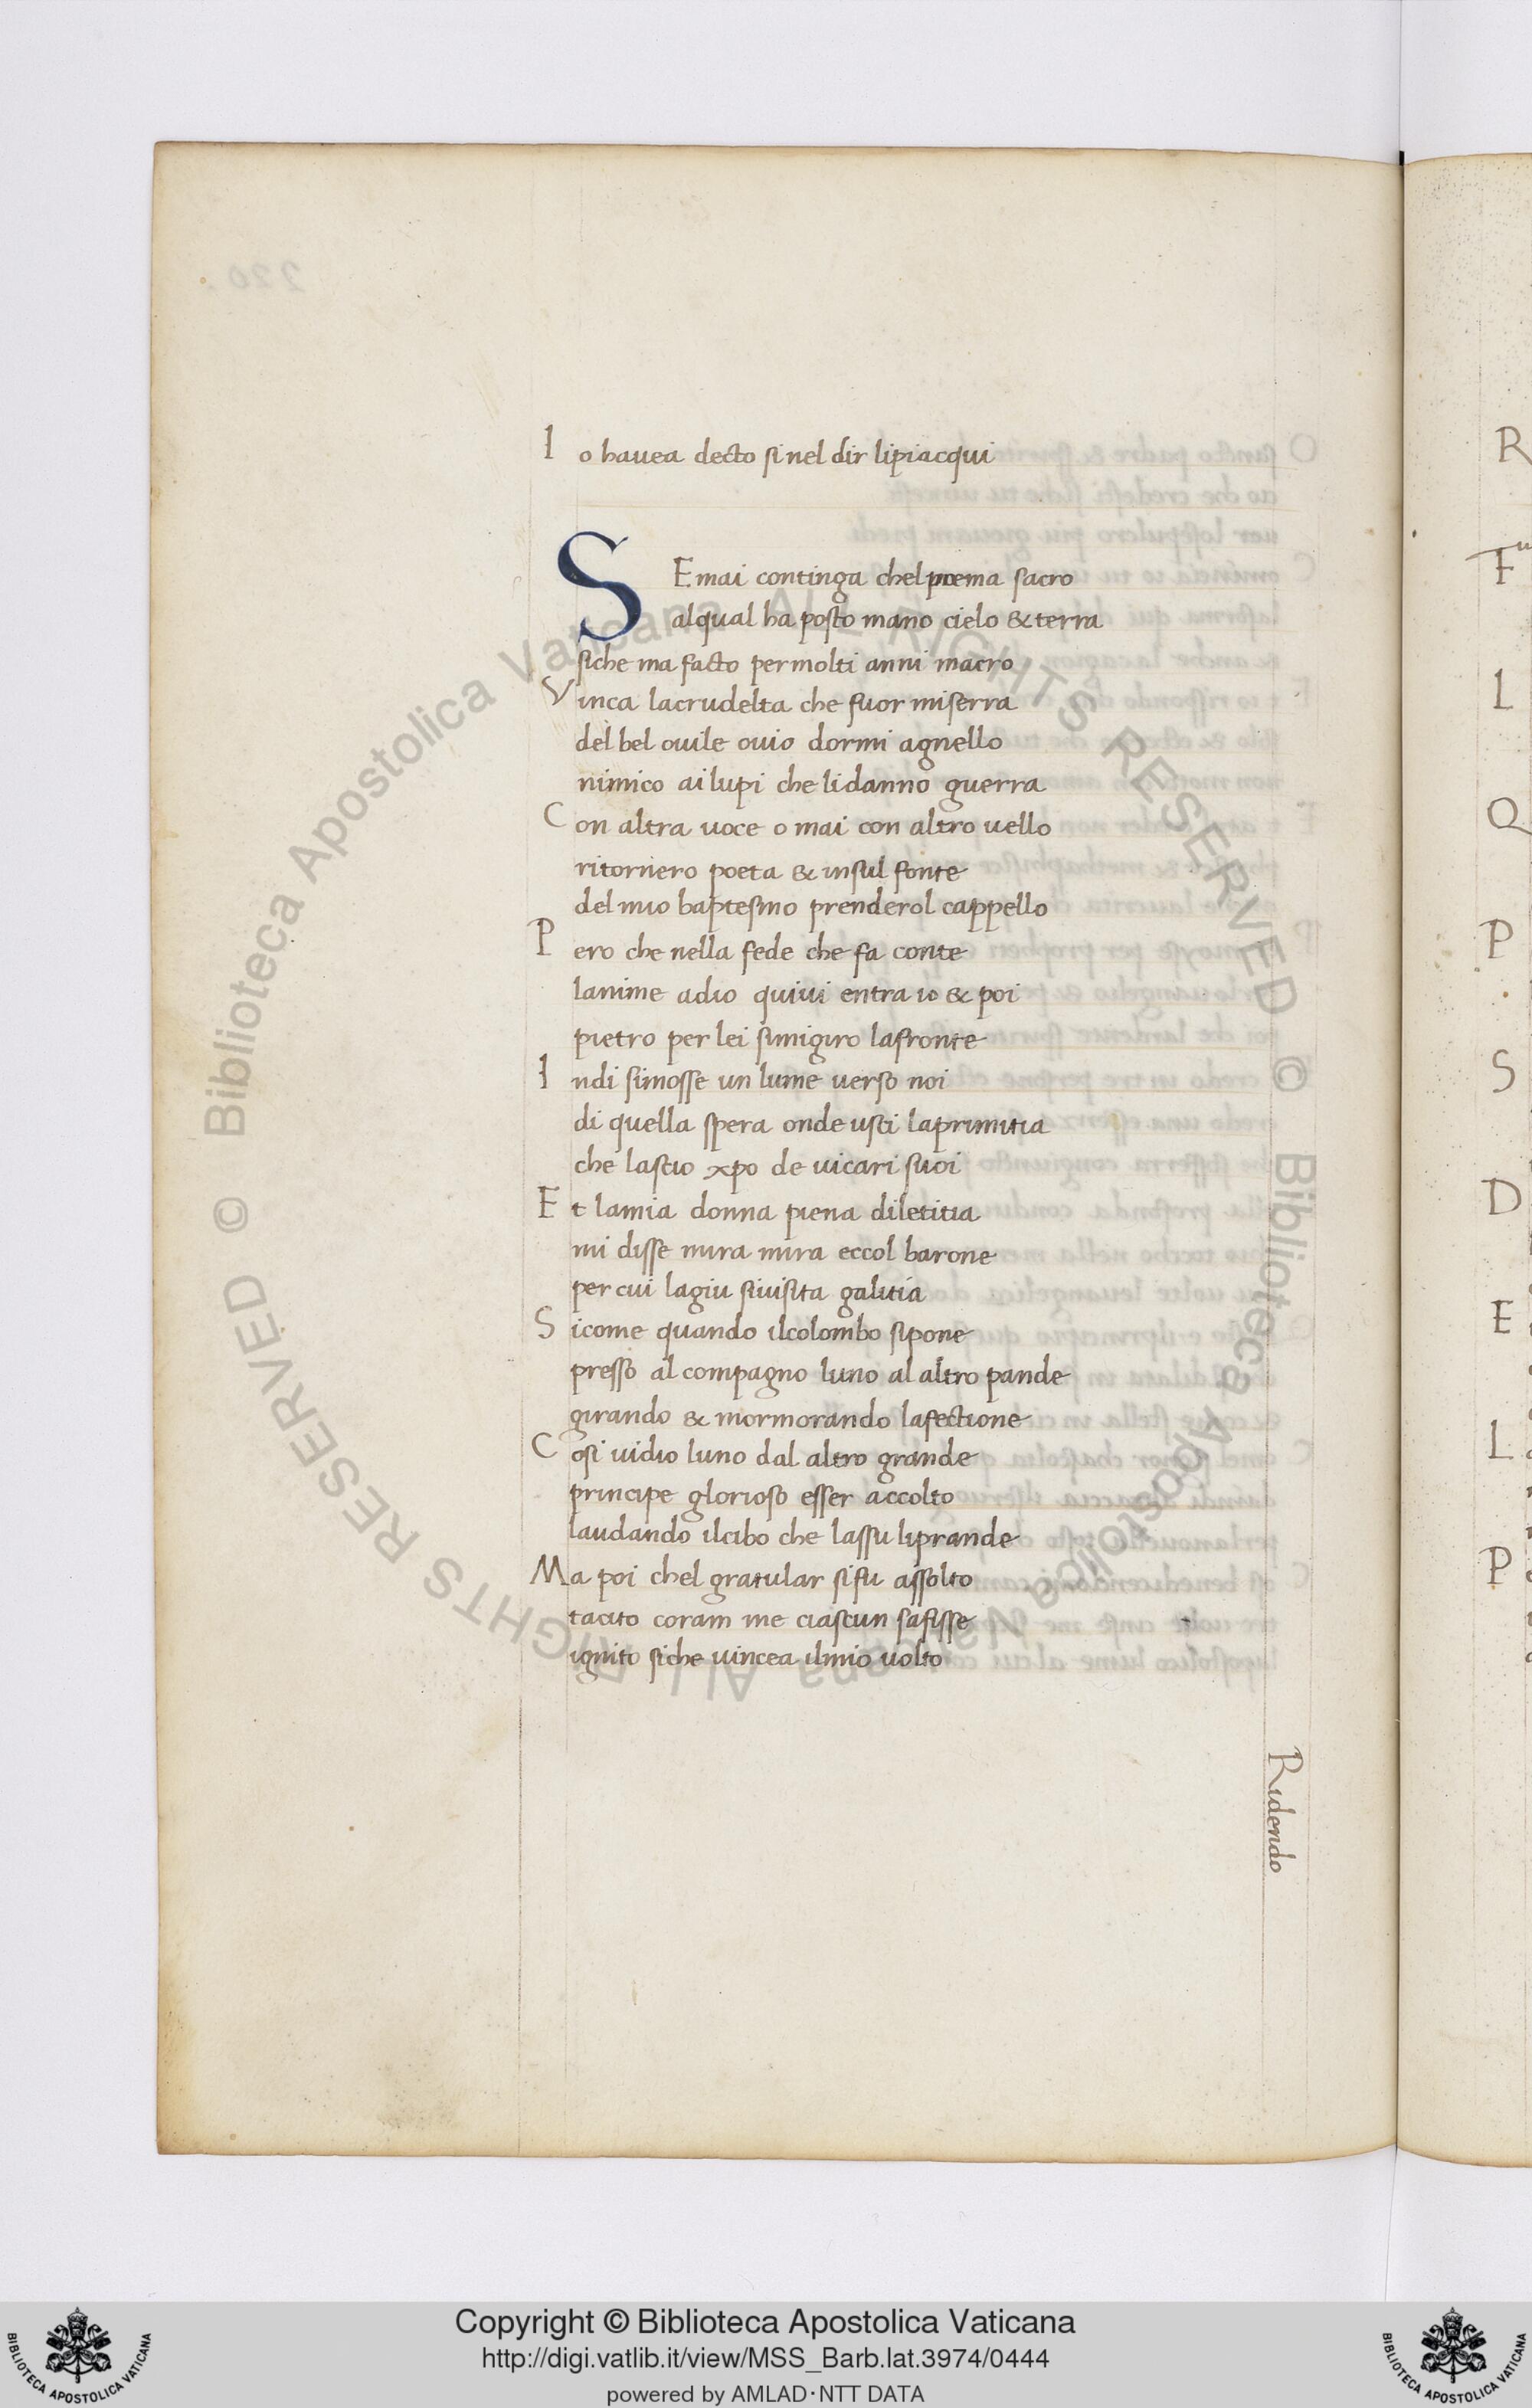 Io hauea decto si nel dir lipiacqui
SE mai continga chel poema sacro
alqual ha posto mano cielo & terra
siche ma facto per molti anni macro
Vinca lacrudelta che fuor miserra
del bel ouile ouio dormi agnello
nimico ai lupi che lidanno guerra
Con altra uoce o mai con altro uello
ritornero poeta & insul fonte
del mio baptesmo prenderol cappello
Pero che nella fede che fa conte
lanime adio quiui entra io & poi
pietro per lei simigiro lafronte
Indi simosse un lume uerso noi
di quella spera onde usci laprimitia
che lascio xpo de uicari suoi
Et lamia donna piena diletitia
mi disse mira mira eccol barone
per cui lagiu siuisita galitia
Sicome quando ilcolombo sipone
presso al compagno luno al altro pande
girando & mormorando lafectione
Cosi uidio luno dal altro grande
principe glorioso esser accolto
laudando ilcibo che lassu liprande
Ma poi chel gratular sifu assolto
tacito coram me ciascun safisse
ignito siche uincea ilmio uolto
Ridendo
R
F
L
Q
P
S
D
E
L
P
© Biblioteca Apostolica Vaticana ALL RIGHTS RESERVED © Biblioteca Apostolica Vaticana ALL RIGHTS RESERVED
Copyright © Biblioteca Apostolica Vaticana
http://digi.vatlib.it/view/MSS_Barb.lat.3974/0444
powered by AMLAD·NTT DATA
BIBLIOTECA APOSTOLICA VATICANA
BIBLIOTECA APOSTOLICA VATICANA